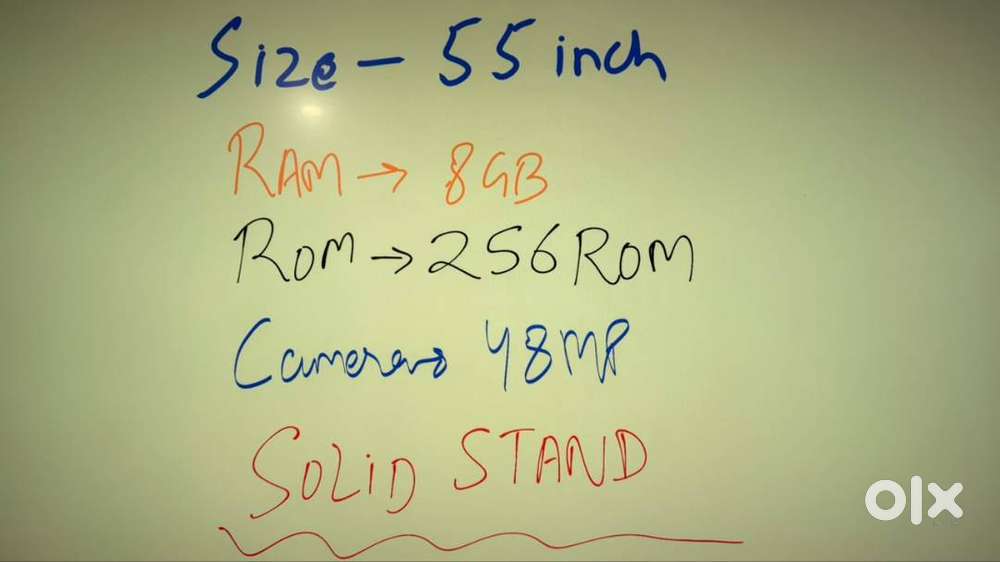 Size - 55 inch
RAM → 8GB
ROM → 256 ROM
Camera → 48MP
SOLID STAND
olx